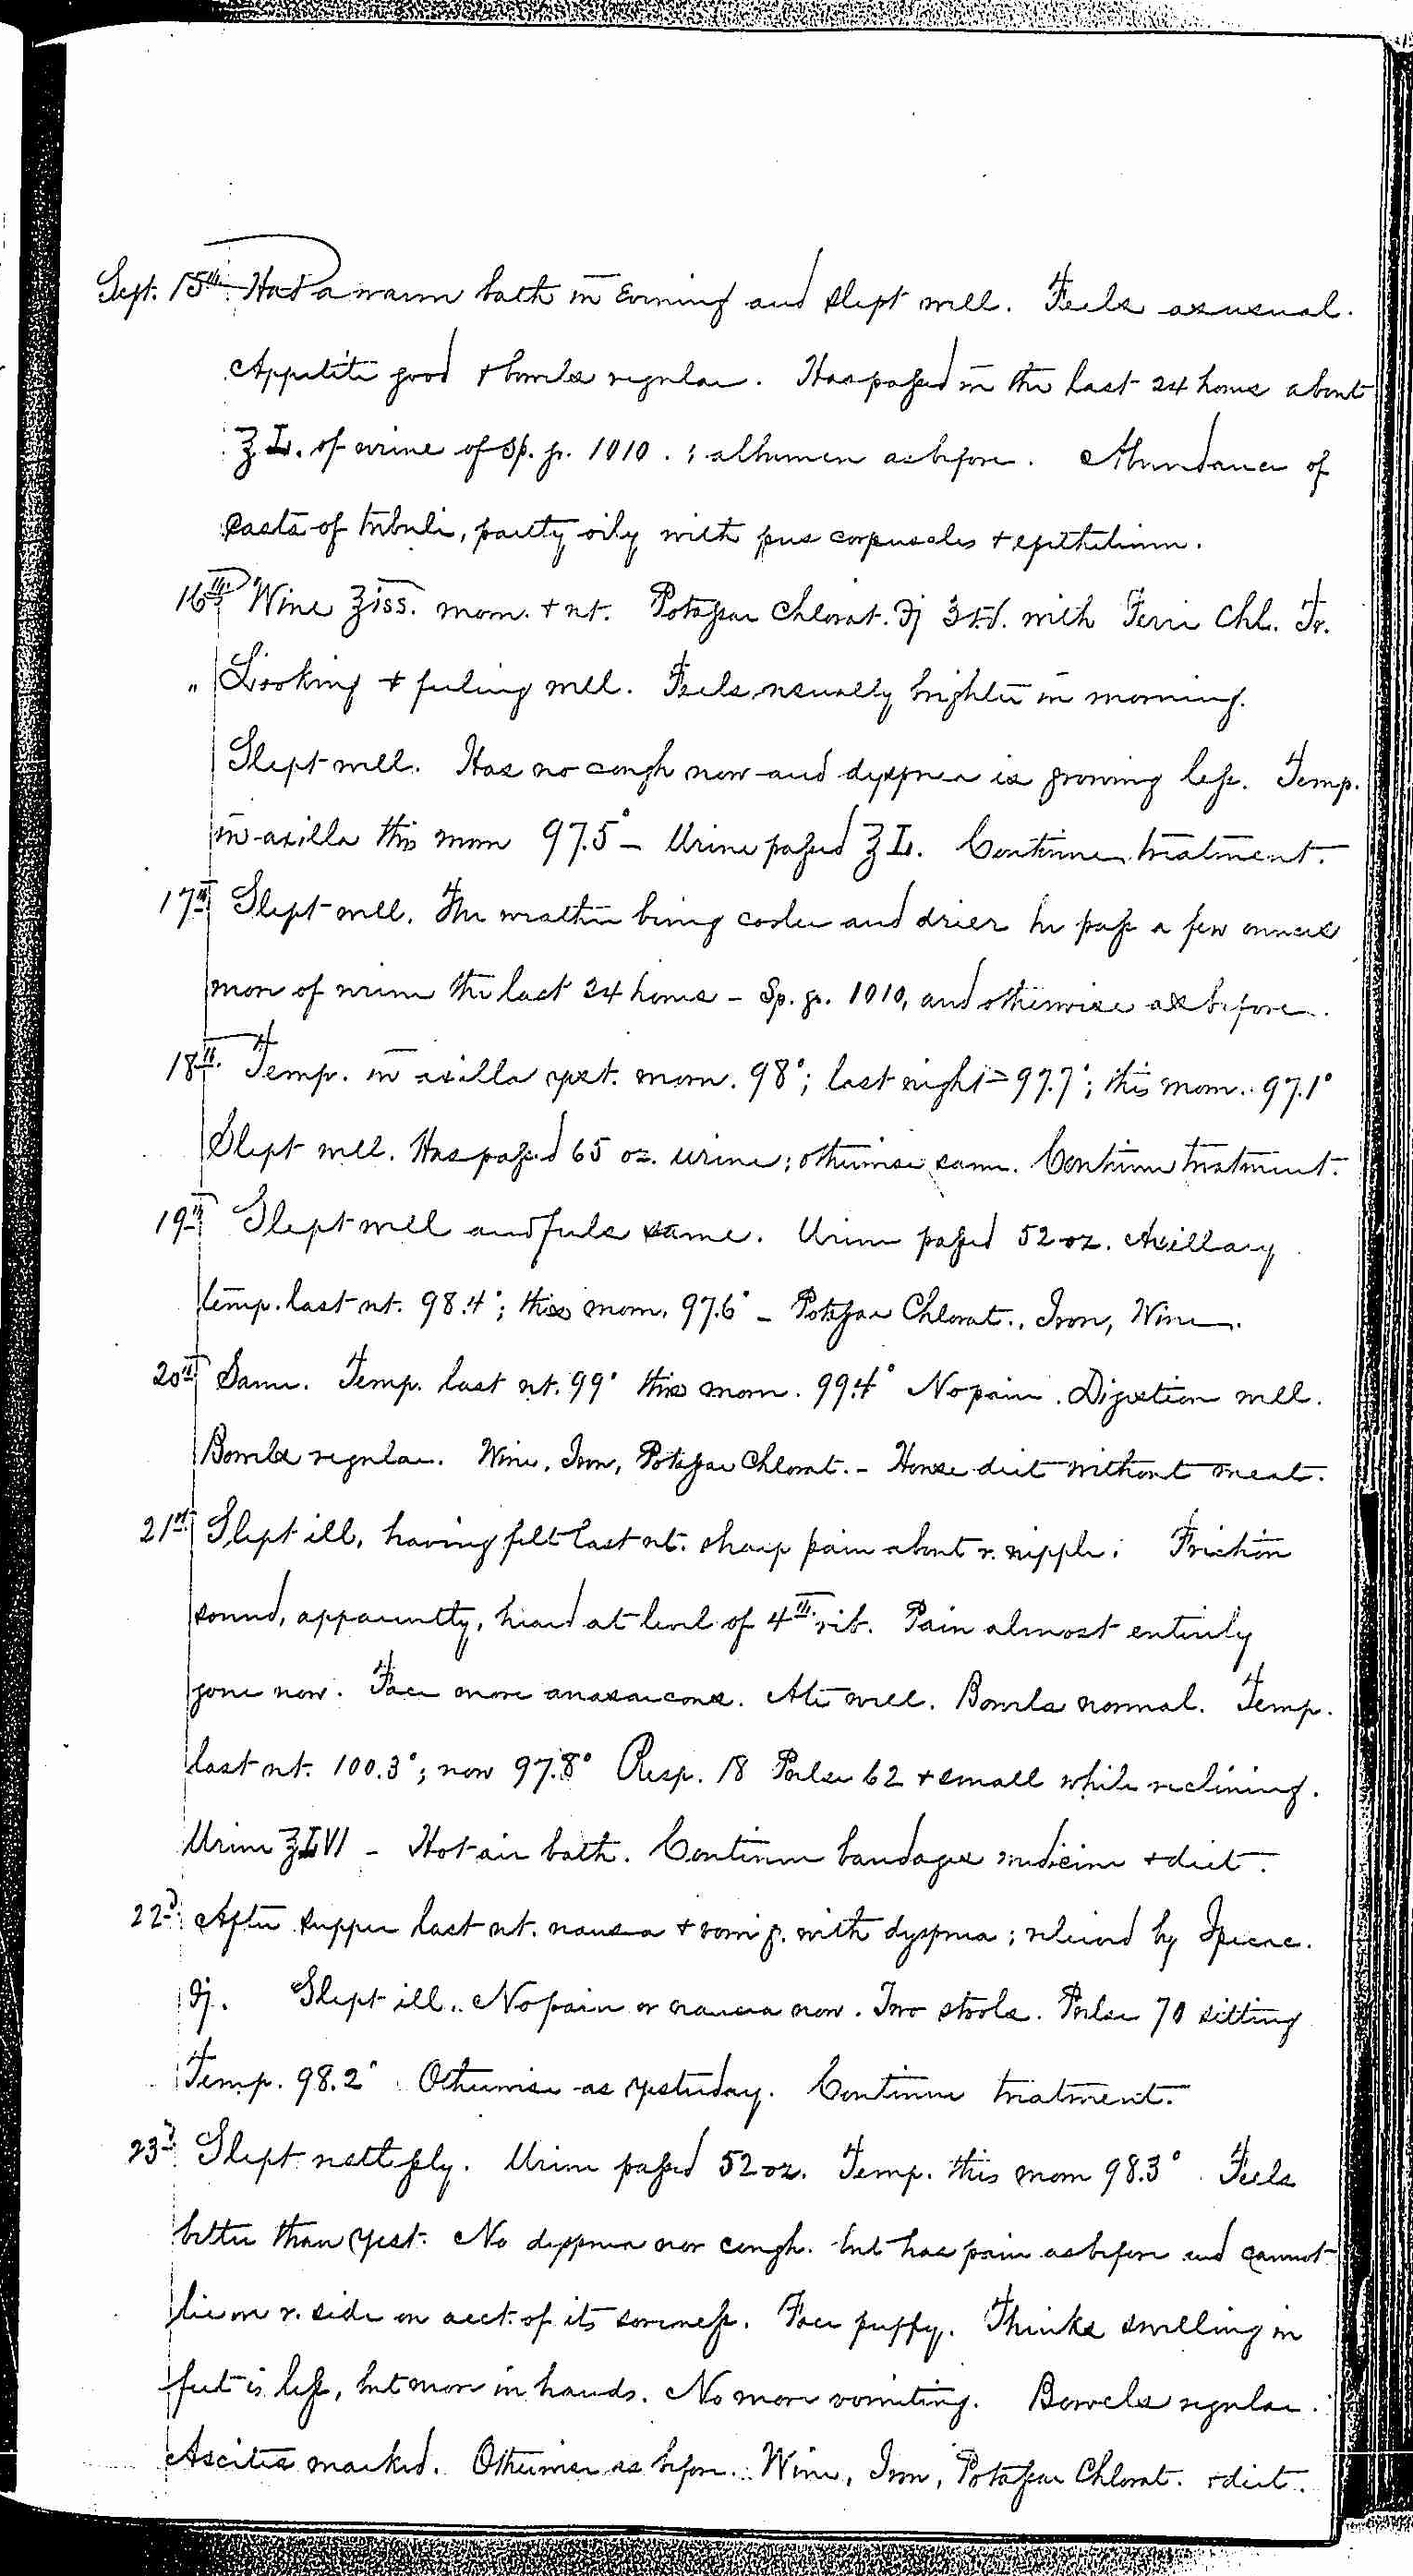 Sept. 15th Had a warm bath in Evening and slept well. Feels as usual.
Appetite good & bowels regular. Has passed in the last 24 hours about
℥L. of urine of Sp. gr. 1010. ; albumen as before. Abundance of
Casts of tubuli, partly oily with pus corpuscles & epithelium.
16th Wine ℥iss. morn. & nt. Potassae Chlorat. ℈j 3 t.d. with Ferri Chl. Tr.
" Looking & feeling well. Feels usually brighter in morning.
Slept well. Has no cough now and dyspnea is growing less. Temp.
in axilla this morn 97.5° – Urine passed ℥L. Continue treatment.
17th Slept well. The weather being cooler and drier he pass a few ounces
more of urine the last 24 hours – Sp. gr. 1010, and otherwise as before.
18th Temp. in axilla yest. morn. 98°; last night = 97.7°; this morn. 97.1°
Slept well. Has passed 65 oz. urine; otherwise same. Continue treatment.
19th Slept well and feels same. Urine passed 52 oz. Axillary
temp. last nt. 98.4°; this morn. 97.6° – Potassae Chlorat., Iron, Wine.
20th Same. Temp. last nt. 99° this morn. 99.4° No pain. Digestion well.
Bowels regular. Wine, Iron, Potassae Chlorat. – House diet without meat.
21st Slept ill, having felt last nt. sharp pain about r. nipple. Friction
sound, apparently, heard at level of 4th rib. Pain almost entirely
gone now. Face more anasarcous. Ate well. Bowels normal. Temp.
last nt. 100.3°; now 97.8° Resp. 18 Pulse 62 & small while reclining.
Urine ℥LVI – Hot air bath. Continue bandages medicine & diet.
22d After supper last nt. nausea & vomig. with dyspnea; relieved by Ipecac.
℈j. Slept ill. No pain or nausea now. Two stools. Pulse 70 sitting
Temp. 98.2° Otherwise as yesterday. Continue treatment.
23d Slept restlessly. Urine passed 52 oz. Temp. this morn 98.3° Feels
better than yest. No dyspnea nor cough. but has pain as before and cannot
lie on r. side on acct. of its soreness. Face puffy. Thinks swelling in
feet is less, but more in hands. No more vomiting. Bowels regular.
Ascites marked. Otherwise as before. Wine, Iron, Potassae Chlorat. & diet.